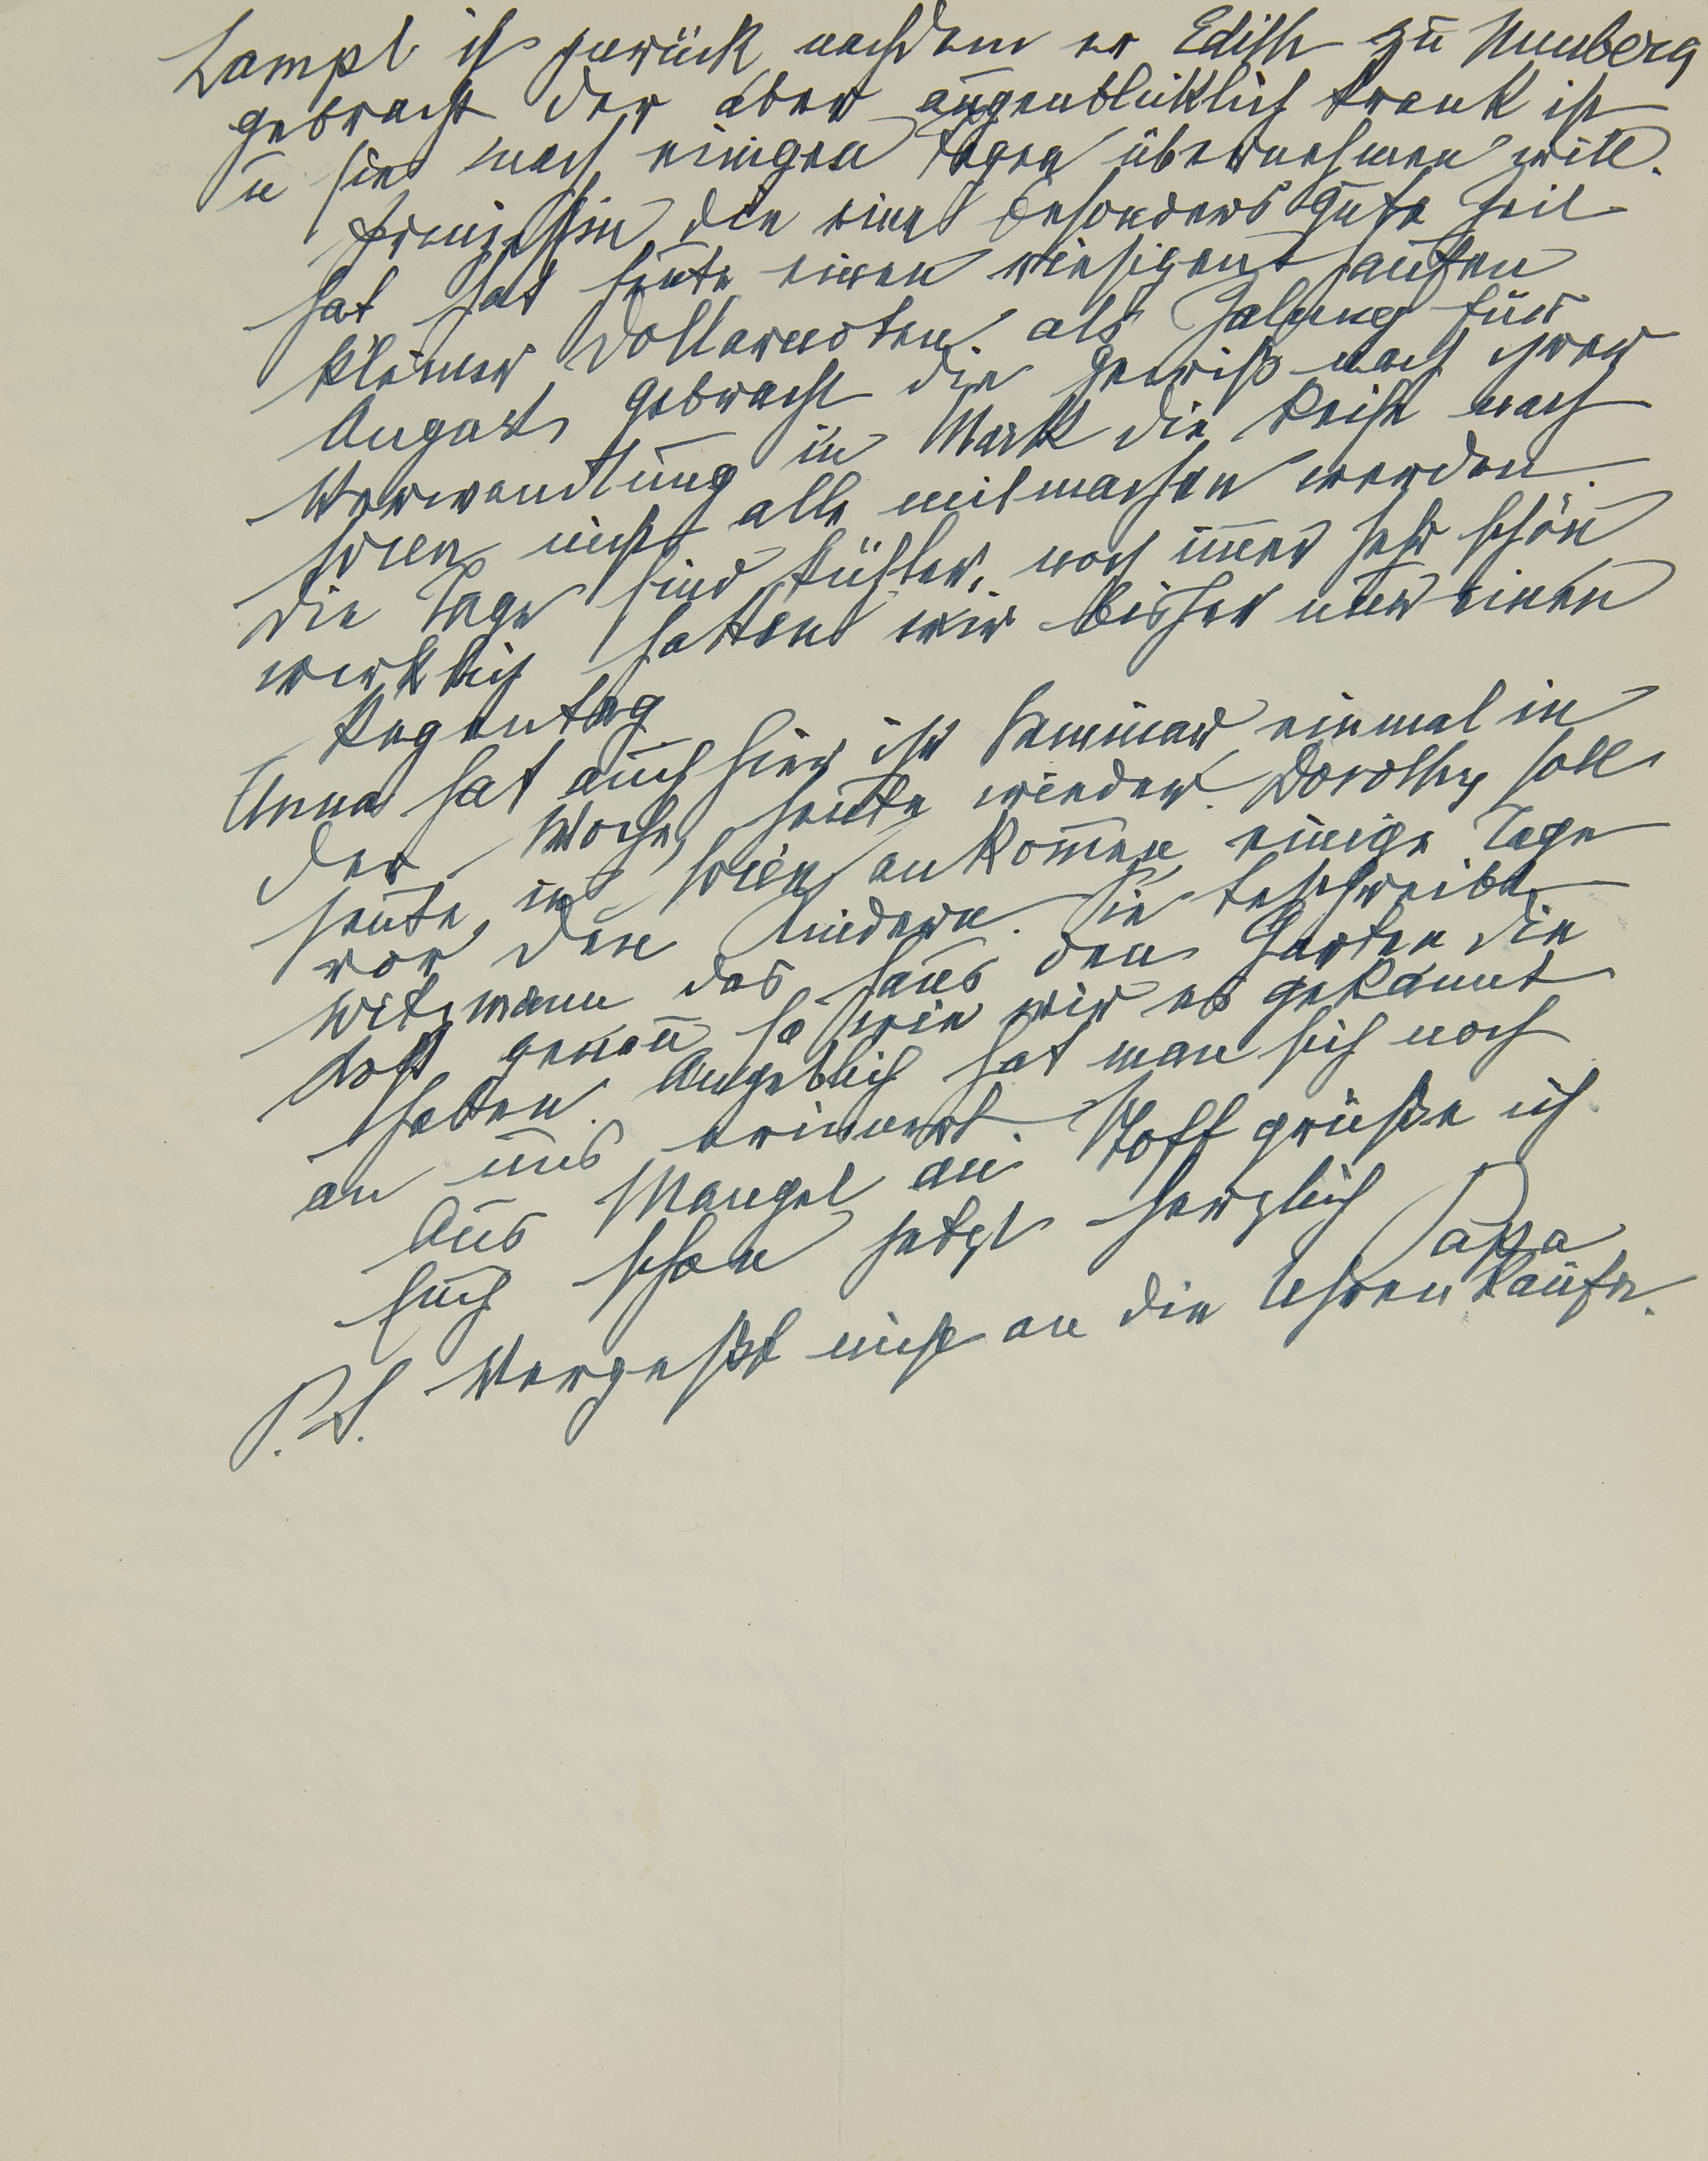 Lampl ist zurück nachdem er Edith zu Nunberg
gebracht der aber augenbliklich krank ist
u sie nach einigen Tagen übernehmen will.
Prinzessin die eine besonders gute Zeit
hat hat heute einen riesigen Haufen
kleiner Dollarnoten als Zalung für
August gebracht die gewiß nach ihrer
Verwandlung in Mark die Reise nach
Wien nicht alle mitmachen werden.
Die Tage sind kühler, noch immer sehr schön
wirklich hatten wir bisher nur einen
Regentag
Anna hat auch hier ihr Seminar einmal in
der Woche, heute wieder. Dorothy soll
heute in Wien ankommen einige Tage
vor den Kindern. Sie beschreibt
Witzmann das Haus den Garten die
Kost genau so wie wir es gekannt
haben. Angeblich hat man sich noch
an uns erinnert.
Aus Mangel an Stoff grüße ich
Euch schon jetzt herzlich
Papa
P.S. Vergeßt nicht an die Uhrenkäufe.